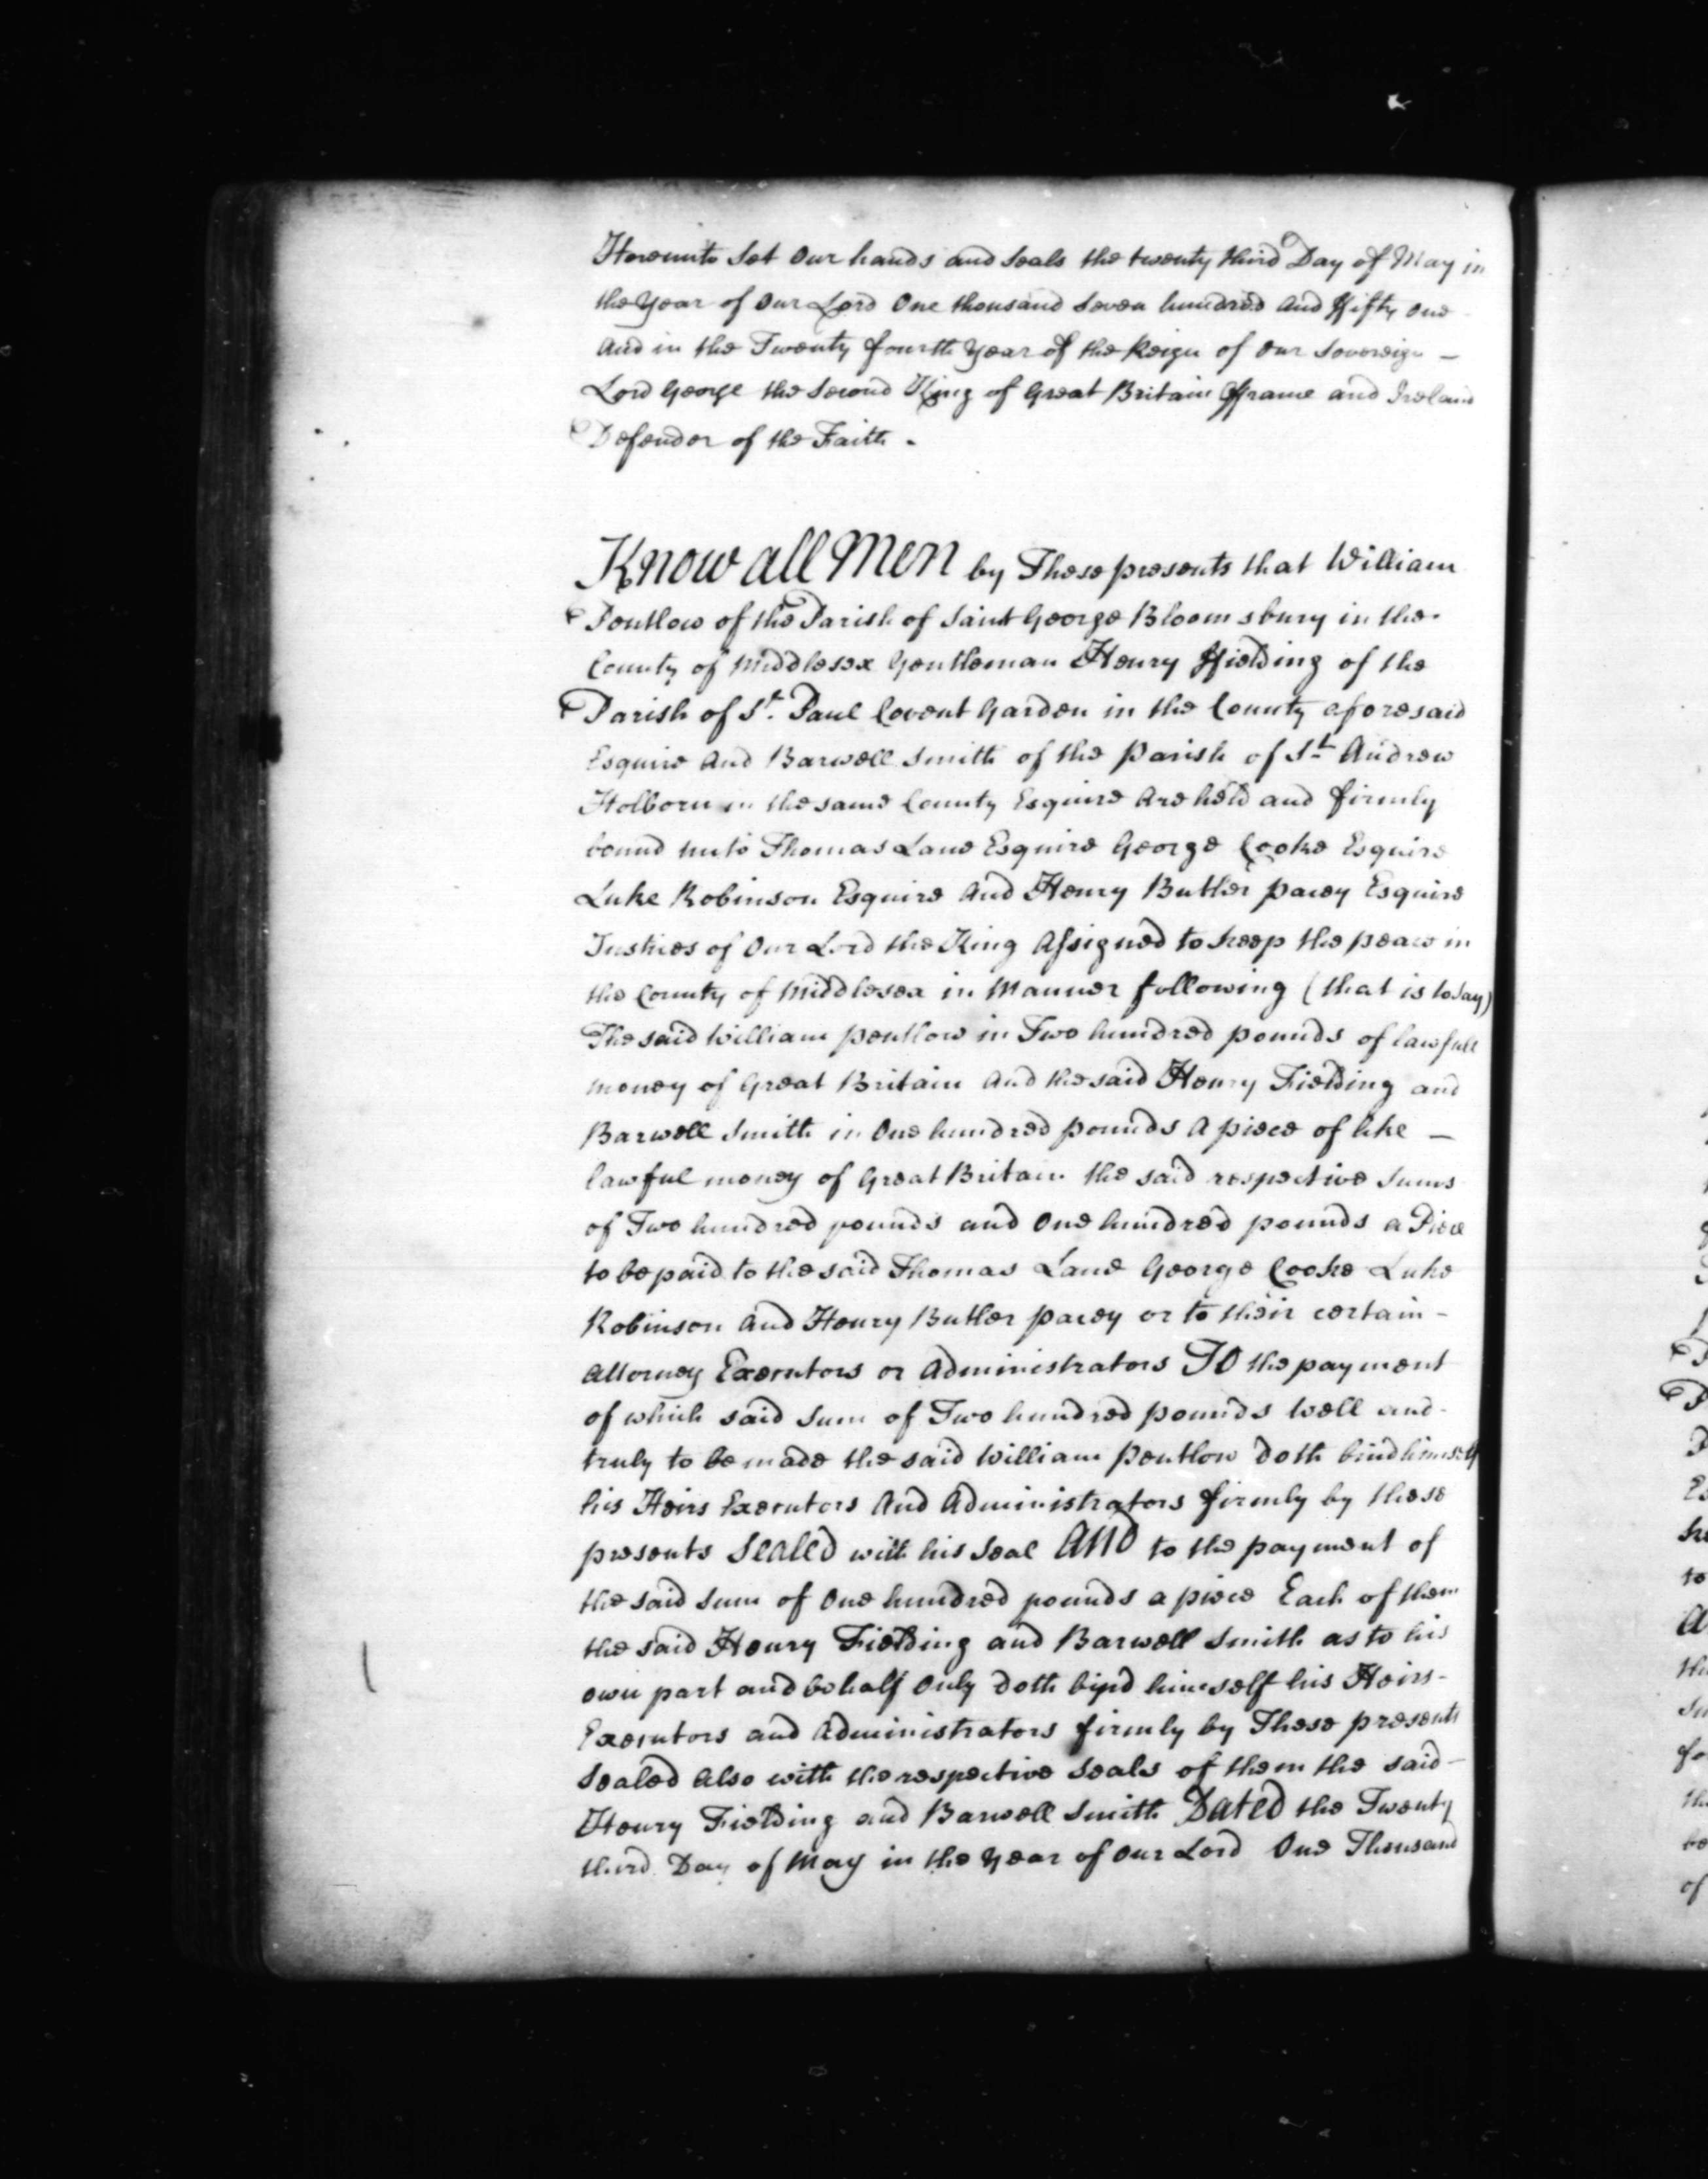 Hereunto Set Our hands and Seals the twenty third Day of May in
the Year of Our Lord One thousand Seven hundred and ffifty one
and in the Twenty fourth Year of the Reign of Our Sovereign —
Lord George the Second King of Great Britain ffrance and Ireland
Defender of the Faith.
Know all Men by These presents that William
Pentlow of the Parish of Saint George Bloomsbury in the
County of Middlesex Gentleman Henry ffielding of the
Parish of St. Paul Covent Garden in the County aforesaid
Esquire And Barwell Smith of the Parish of St. Andrew
Holborn in the same County Esquire Are held and firmly
bound unto Thomas Lane Esquire George Cooke Esquire
Luke Robinson Esquire And Henry Butler pacey Esquire
Justices of Our Lord the King Assigned to keep the peace in
the County of Middlesex in Manner following (that is to Say)
The said William pentlow in Two hundred pounds of lawfull
money of Great Britain and the said Henry Fielding and
Barwell Smith in One hundred pounds A piece of like —
lawful money of Great Britain the said respective Sums
of Two hundred pounds and One hundred pounds a Piece
to be paid to the said Thomas Lane George Cooke Luke
Robinson And Henry Butler pacey or to their certain -
Attorney Executors or Administrators To the payment
of which said Sum of Two hundred pounds Well and -
truly to be made the said William Pentlow doth bind himself
his Heirs Executors And Administrators firmly by these
presents Sealed with his Seal And to the payment of
the said Sum of One hundred pounds a piece Each of them
the said Henry Fielding and Barwell Smith as to his
own part and behalf Only doth bind himself his Heirs -
Executors and Administrators firmly by These presents
Sealed Also with the respective Seals of them the said -
Henry Fielding and Barwell Smith Dated the Twenty
third Day of May in the Year of Our Lord One Thousand